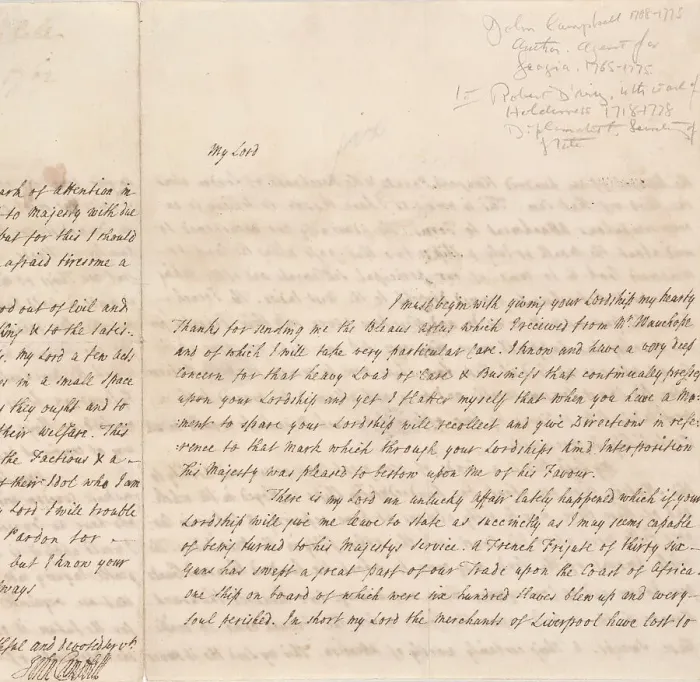 ark of Attention in
to Majesty with due
but for this I should
afraid tiresome a
od out of Evil and
King & to the Satis-
My Lord a few Acts
in a small space
they ought and to
their welfare. This
the Factious & a
their Idol who I am
Lord I will trouble
Pardon for
but I know your
lways
thful and devoted
John Campbell
John Campbell 1708-1775
Author. Agent for
Georgia. 1765-1775.
to Robert D'arcy, 4th Earl of
Holderness 1718-1778
Diplomatist, Secretary of
State
My Lord
I must begin with giving your Lordship my hearty
Thanks for sending me the Blaus Atlas which I received from Mr. Wauchope
and of which I will take very particular Care. I know and have a very deep
Concern for that heavy Load of Care & Business that continually presses
upon your Lordship and yet I flatter myself that when you have a Mo-
ment to spare your Lordship will recollect and give Directions in refe-
rence to that Mark which through your Lordships kind Interposition
His Majesty was pleased to bestow upon Me of his Favour.
There is my Lord an unlucky affair lately happened which if your
Lordship will give me leave to state as succinctly as I may seems capable
of being turned to his Majestys Service. A French Frigate of thirty six
Guns has swept a great part of our Trade upon the Coast of Africa.
one ship on board of which were six hundred Slaves blew up and every
Soul perished. In short my Lord the merchants of Liverpool have lost to